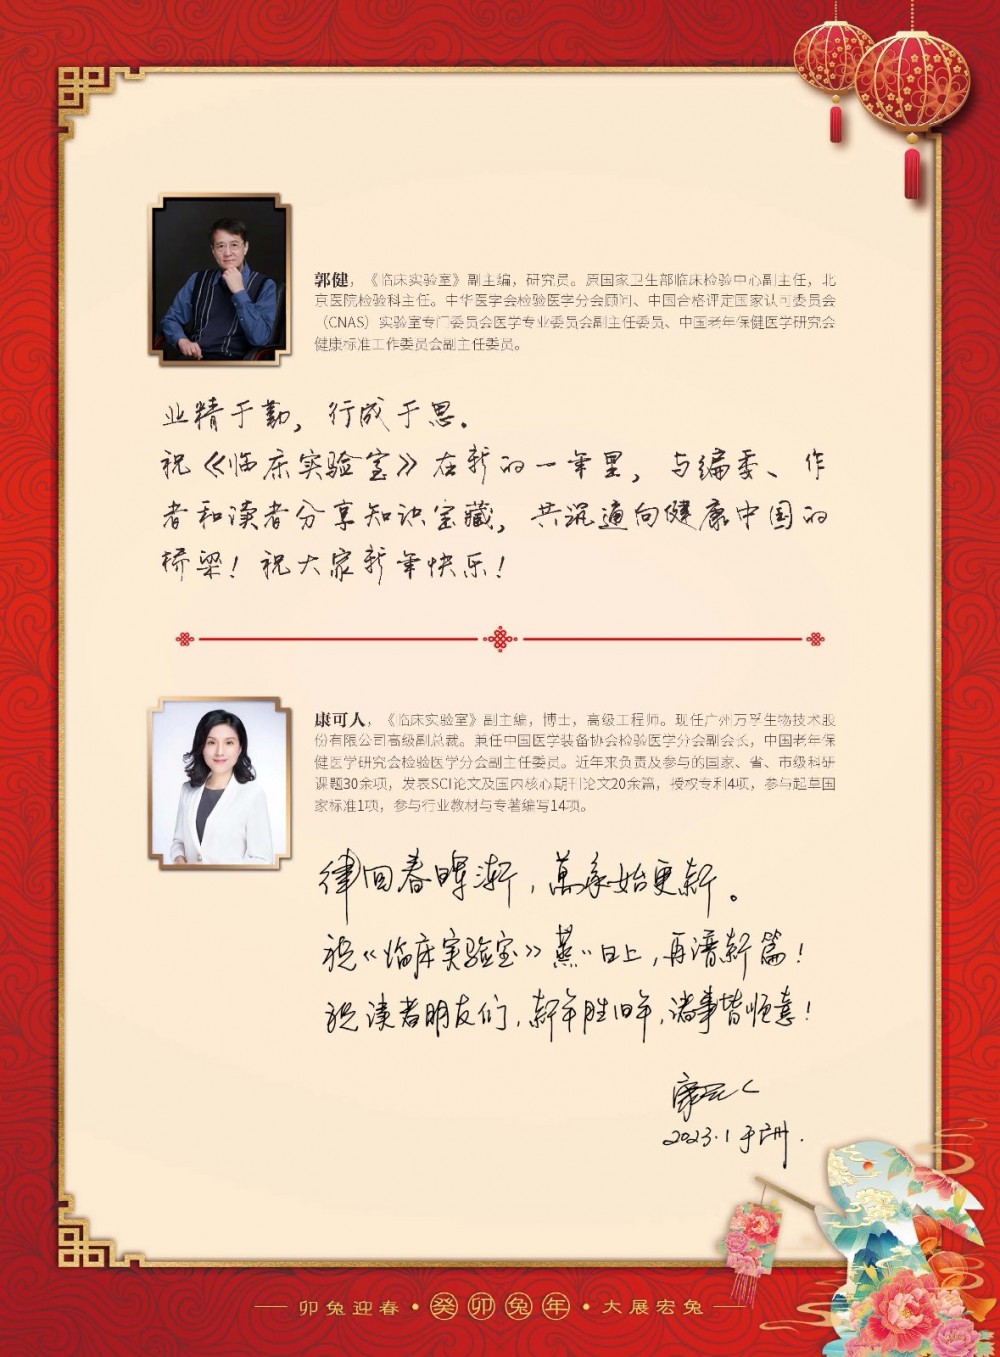 郭健，《临床实验室》副主编，研究员。原国家卫生部临床检验中心副主任，北
京医院检验科主任。中华医学会检验医学分会顾问、中国合格评定国家认可委员会
（CNAS）实验室专门委员会医学专业委员会副主任委员、中国老年保健医学研究会
健康标准工作委员会副主任委员。
业精于勤，行成于思。
祝《临床实验室》在新的一年里，与编委、作
者和读者分享知识宝藏，共筑通向健康中国的
桥梁！祝大家新年快乐！
康可人，《临床实验室》副主编，博士，高级工程师。现任广州万孚生物技术股
份有限公司高级副总裁。兼任中国医学装备协会检验医学分会副会长，中国老年保
健医学研究会检验医学分会副主任委员。近年来负责及参与的国家、省、市级科研
课题30余项，发表SCI论文及国内核心期刊论文20余篇，授权专利4项，参与起草国
家标准1项，参与行业教材与专著编写14项。
律回春晖渐，萬象始更新。
祝《临床实验室》蒸蒸日上，再谱新篇！
祝读者朋友们，新年胜旧年，诸事皆顺意！
康可人
2023.1 于广州.
卯兔迎春·癸卯兔年·大展宏兔